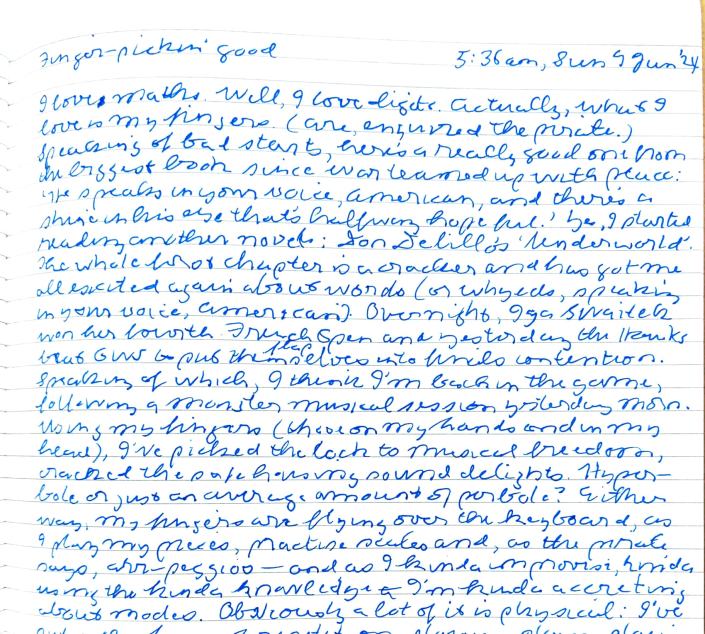 Finger-pickin' good 5:36am, Sun 9 Jun '24
I love maths. Well, I love digits. Actually, what I
love is my fingers. (Are, enquired the pirate.)
Speaking of bad starts, here's a really good one from
the biggest book since war teamed up with peace:
'He speaks in your voice, American, and there's a
shine in his eye that's halfway hopeful.' Yes, I started
reading another novel: Don Delillo's 'Underworld'.
The whole first chapter is a cracker and has got me
all excited again about words (or whyeds, speaking
in your voice, American). Overnight, Iga Swaitek
won her fourth French Open and yesterday the Hawks
beat GWS to put themselves into finals contention.
Speaking of which, I think I'm back in the game,
following a monster musical session yesterday morn.
Using my fingers (those on my hands and in my
head), I've picked the lock to musical freedom,
cracked the safe housing sound delights. Hyper-
bole or just an average amount of perbole? Either
way, my fingers are flying over the keyboard, as
I play my pieces, practise scales and, as the pirate
says, arr-peggios – and as I kinda improvise, kinda
using the kinda knowledge I'm kinda accreting
about modes. Obviously a lot of it is physical: I've